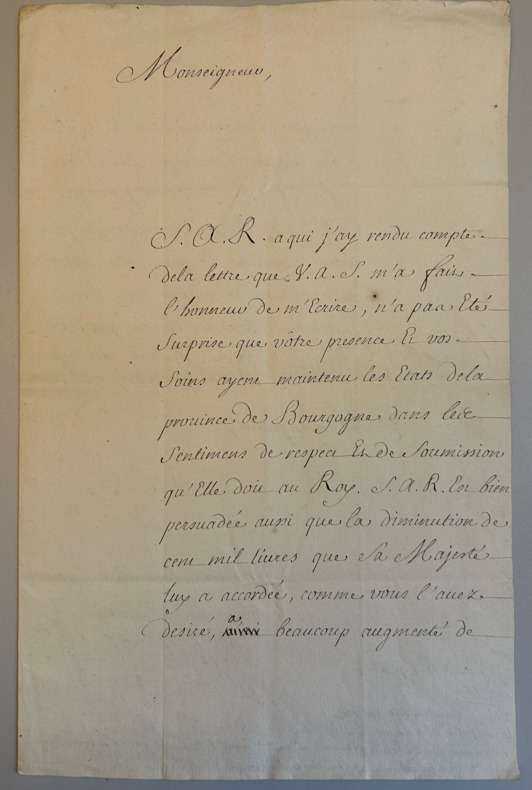 Monseigneur,
S. A. R. a qui j'ay rendu compte
dela lettre que V. A. S. m'a fait
l'honneur de m'Ecrire, n'a pas Eté
surprise que vôtre presence Et vos
soins ayent maintenu les Etats dela
province de Bourgogne dans les
sentimens de respect Et de soumission
qu'Elle doit au Roy. S. A. R. Est bien
persuadée aussi que la diminution de
cent mil livres que Sa Majesté
luy a accordée, comme vous l'avez
desiré, a beaucoup augmenté de